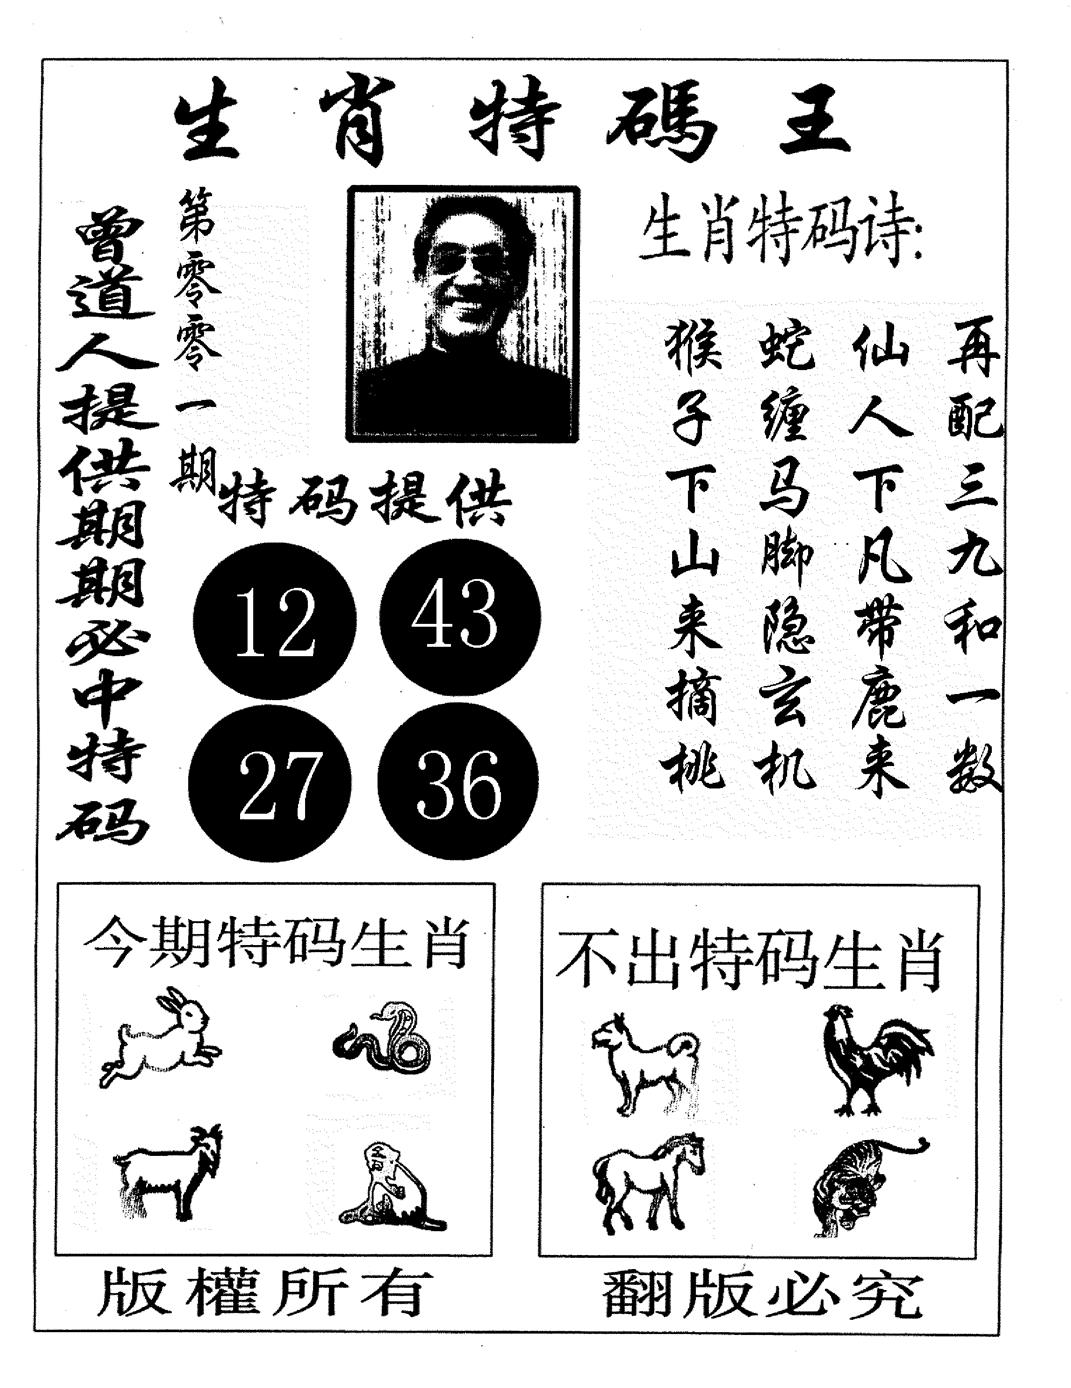 生肖特碼王
曾道人提供期期必中特码
第零零一期
生肖特码诗:
猴子下山来摘桃
蛇缠马脚隐玄机
仙人下凡带鹿来
再配三九和一数
特码提供
12
43
27
36
今期特码生肖
不出特码生肖
版權所有
翻版必究